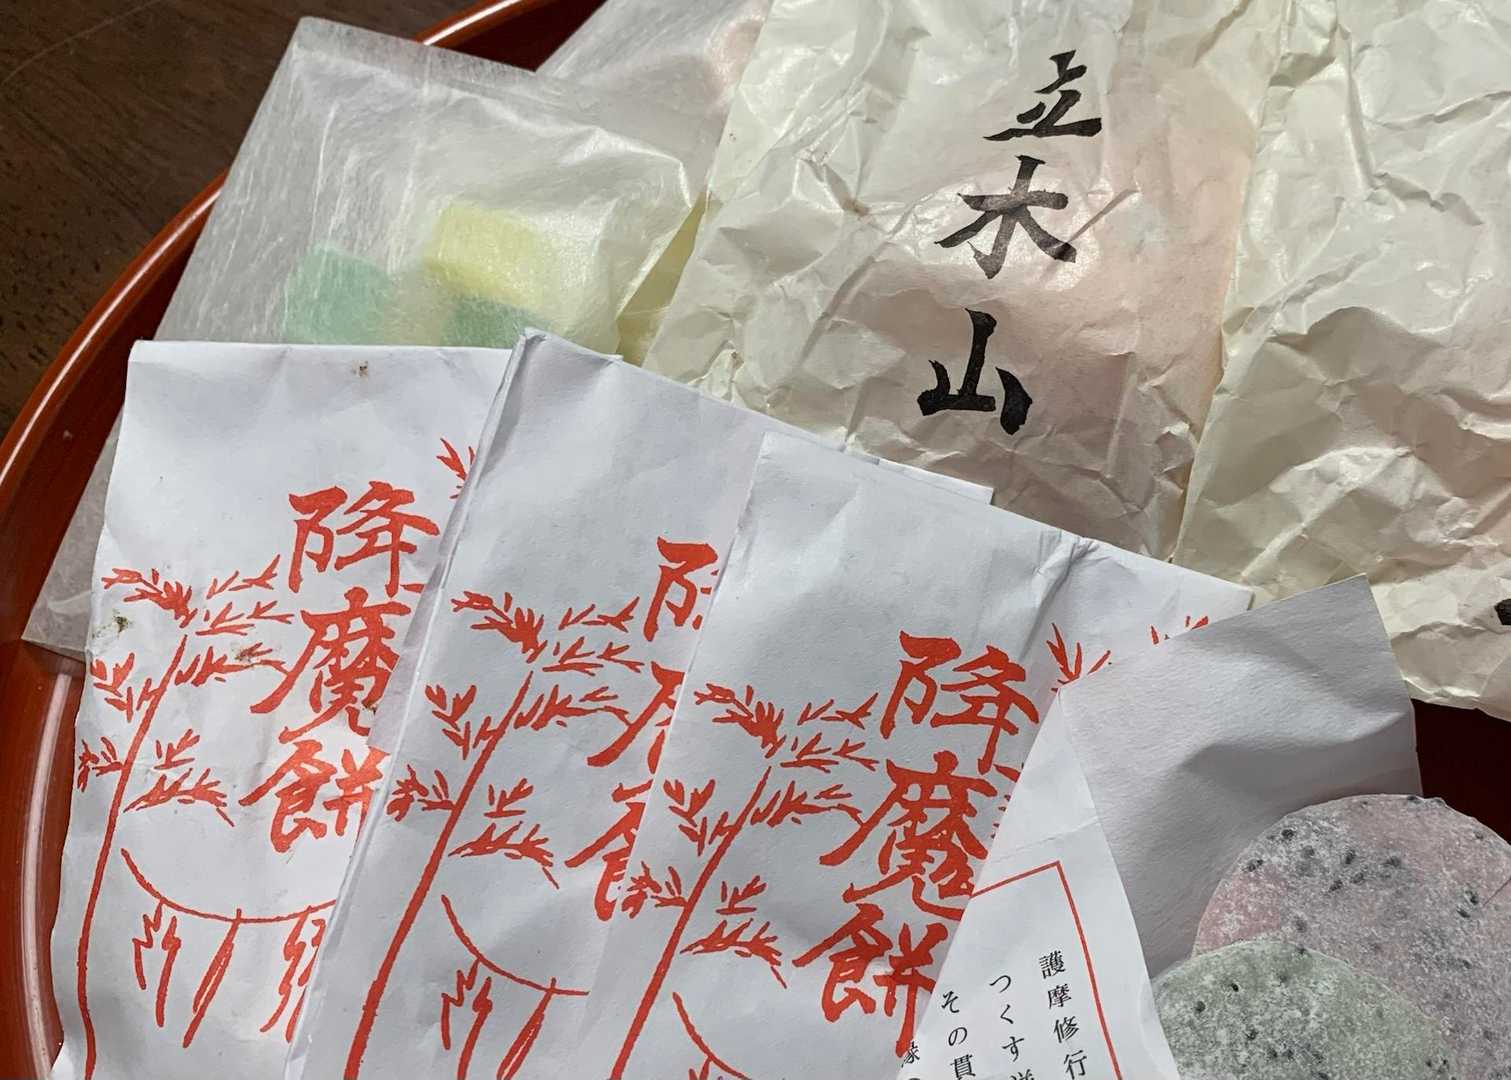 立木山
降魔餅
降魔
降魔餅
護摩修行
つくす
その貫